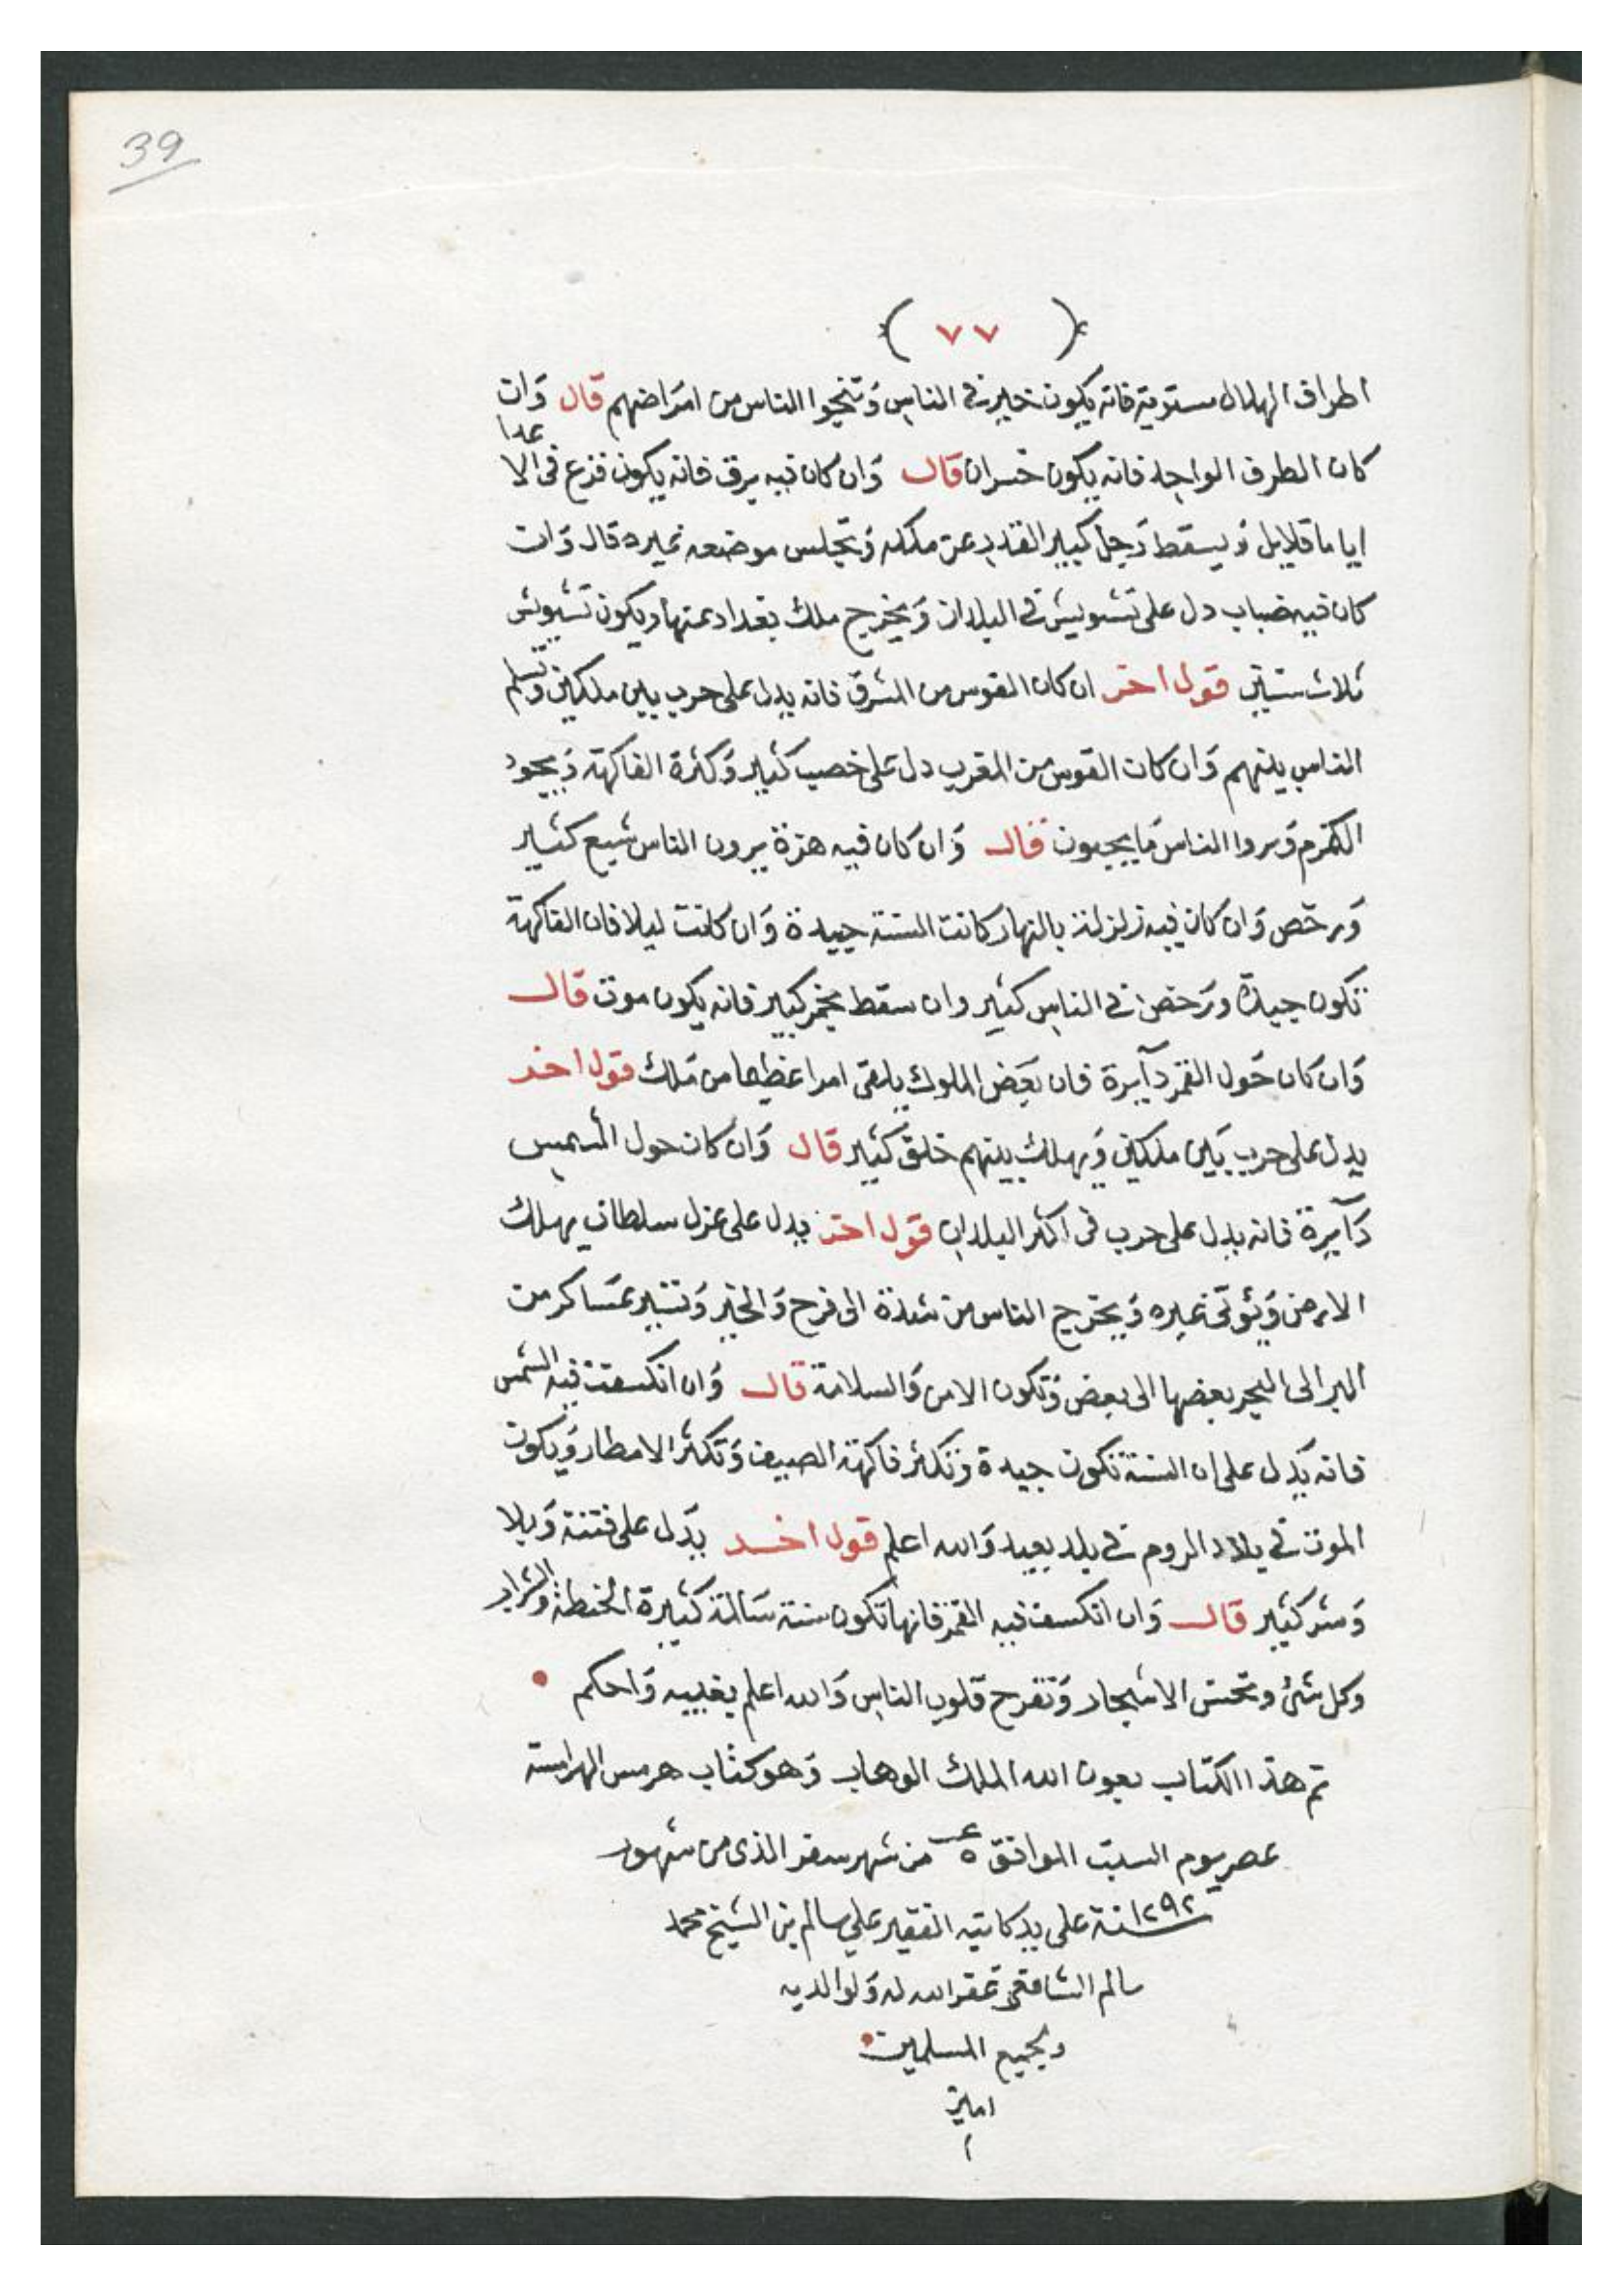 39
( ٧٧ )
اطراف الهلال مستوية فانه يكون خير فى الناس وتنجوا الناس من امراضهم قال وان
كان الطرف الواحد فانه يكون خسران قال وان كان فيه برق فانه يكون فزع فى الاعدا
اياما قلايل ويسقط رجل كبير القدر عن ملكه ويجلس موضعه غيره قال وان
كان فيه ضباب دل على تشويش فى البلدان ويخرج ملك بغداد عنها ويكون تشويش
ثلاث سنين قول اخر ان كان القوس من الشرق فانه يدل على حرب بين ملكين وتسلم
الناس بينهم وان كان القوس من المغرب دل على خصب كثير وكثرة الفاكهة ويجود
الكرم ويروا الناس ما يحبون قال وان كان فيه هزة يرون الناس شبع كثير
ورخص وان كان فيه زلزلة بالنهار كانت السنة جيدة وان كانت ليلا فان الفاكهة
تكون جيدة ورخص فى الناس كثير وان سقط نجم كبير فانه يكون موت قال
وان كان حول القمر دآيرة فان بعض الملوك يلقى امرا عظيما من ملك قول اخر
يدل على حرب بين ملكين ويهلك بينهم خلق كثير قال وان كان حول الشمس
دآيرة فانه يدل على حرب فى اكثر البلدان قول اخر يدل على عزل سلطان يهلك
الارض ويؤتى غيره ويخرج الناس من شدة الى فرح والخير وتسير عساكر من
البر الى البحر بعضها الى بعض وتكون الامن والسلامة قال وان انكسفت فيه الشمس
فانه يدل على ان السنة تكون جيدة وتكثر فاكهة الصيف وتكثر الامطار ويكون
الموت فى بلاد الروم فى بلد بعيد والله اعلم قول اخر يدل على فتنة وبلا
وشر كثير قال وان انكسف فيه القمر فانها تكون سنة سالمة كثيرة الحنطة والشراب
وكل شئ وتحسن الاشجار وتفرح قلوب الناس والله اعلم بغيبه واحكم
تم هذا الكتاب بعون الله الملك الوهاب وهو كتاب هرمس الهرامسة
عصر يوم السبت الموافق ٥ من شهر سفر الذى من شهور
سنة ١٢٩٢ على يد كاتبه الفقير علي سالم بن الشيخ محمد
سالم الشافعى غفر الله له ولوالديه
ولجميع المسلمين
امين
ا